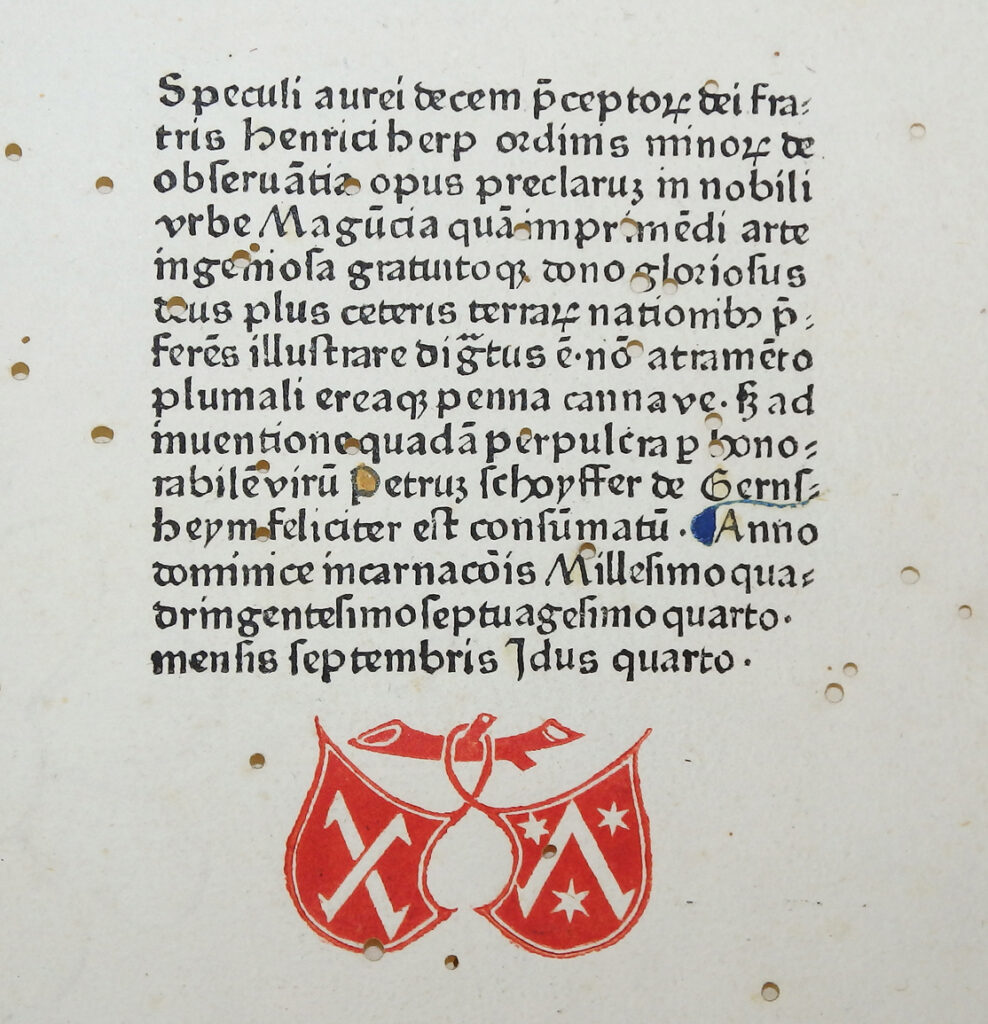 Speculi aurei decem p̄ceptoꝝ dei fra⸗
tris henrici herp ordinis minoꝝ de
obſeruātia opus preclaruꝫ in nobili
vrbe Magūcia quā imprimēdi arte
ingenioſa gratuitoqꝫ dono glorioſus
deus plus ceteris terraꝝ nationibꝫ p̄⸗
ferēs illuſtrare dig̃tus ē·nō atramēto
plumali ereaqꝫ penna cannave· ſꝫ ad
inuentione quadā perpulcra ꝑ hono⸗
rabilē virū Petruꝫ ſchoyffer de Gernſ⸗
heym feliciter eſt conſūmatū· Anno
dominice incarnacōis Milleſimo qua⸗
dringenteſimo ſeptuageſimo quarto·
menſis ſeptembris Idus quarto·